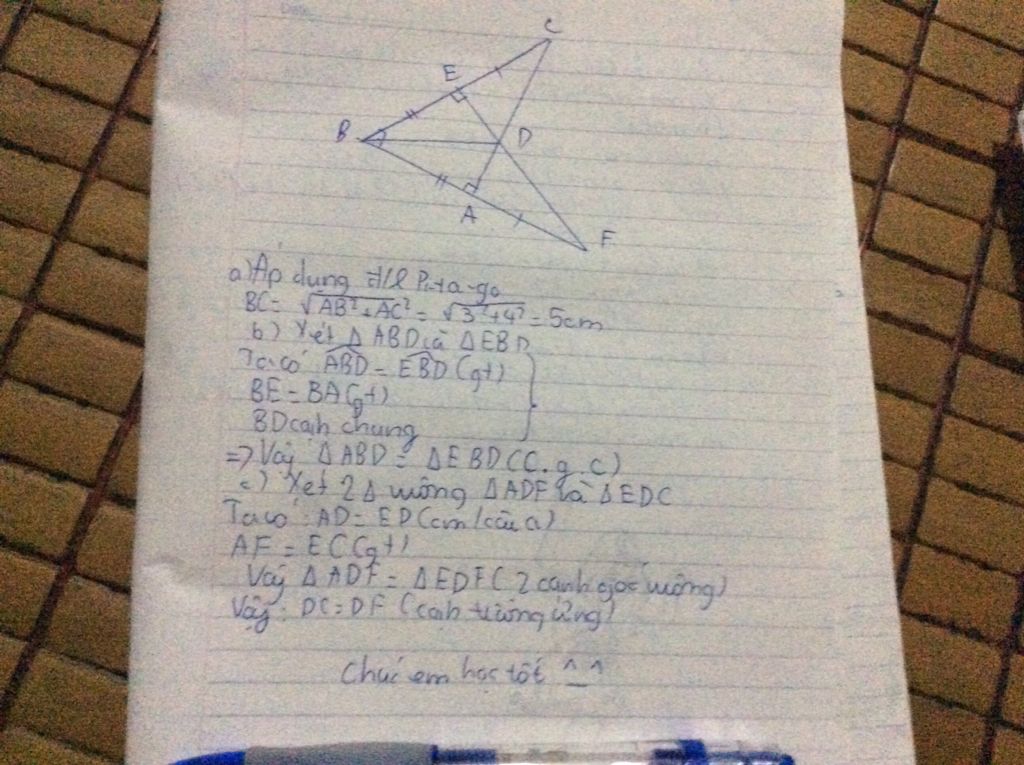 C
E
B
D
A
F
a) Áp dụng đ/l Pi-ta-go
BC = √AB²+AC² = √3²+4² = 5cm
b) Xét Δ ABD và Δ EBD
Ta có ABD = EBD (gt)
BE = BA (gt)
BD cạnh chung
=> Vậy Δ ABD = Δ EBD (C.g.C)
c) Xét 2 Δ vuông Δ ADF và Δ EDC
Ta có: AD = ED (cm/câu a)
AF = EC (gt)
Vậy Δ ADF = Δ EDF (2 cạnh góc vuông)
Vậy: DC = DF (cạnh tương ứng)
Chúc em học tốt ^_^